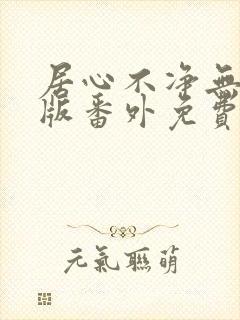 居心不净無
版番外免費
元氣聯萌